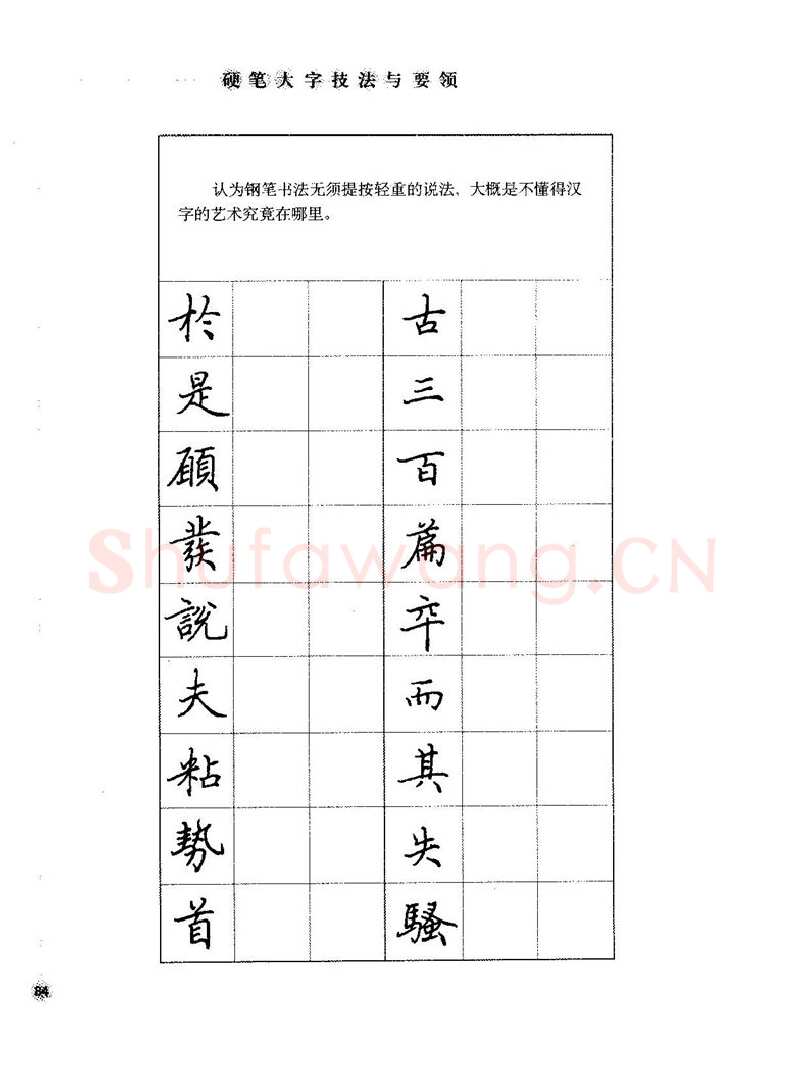 硬笔大字技法与要领
认为钢笔书法无须提按轻重的说法，大概是不懂得汉
字的艺术究竟在哪里。
於 古
是 三
頋 百
發 篇
說 卒
夫 而
粘 其
势 失
首 騷
Shufawang.CN
84